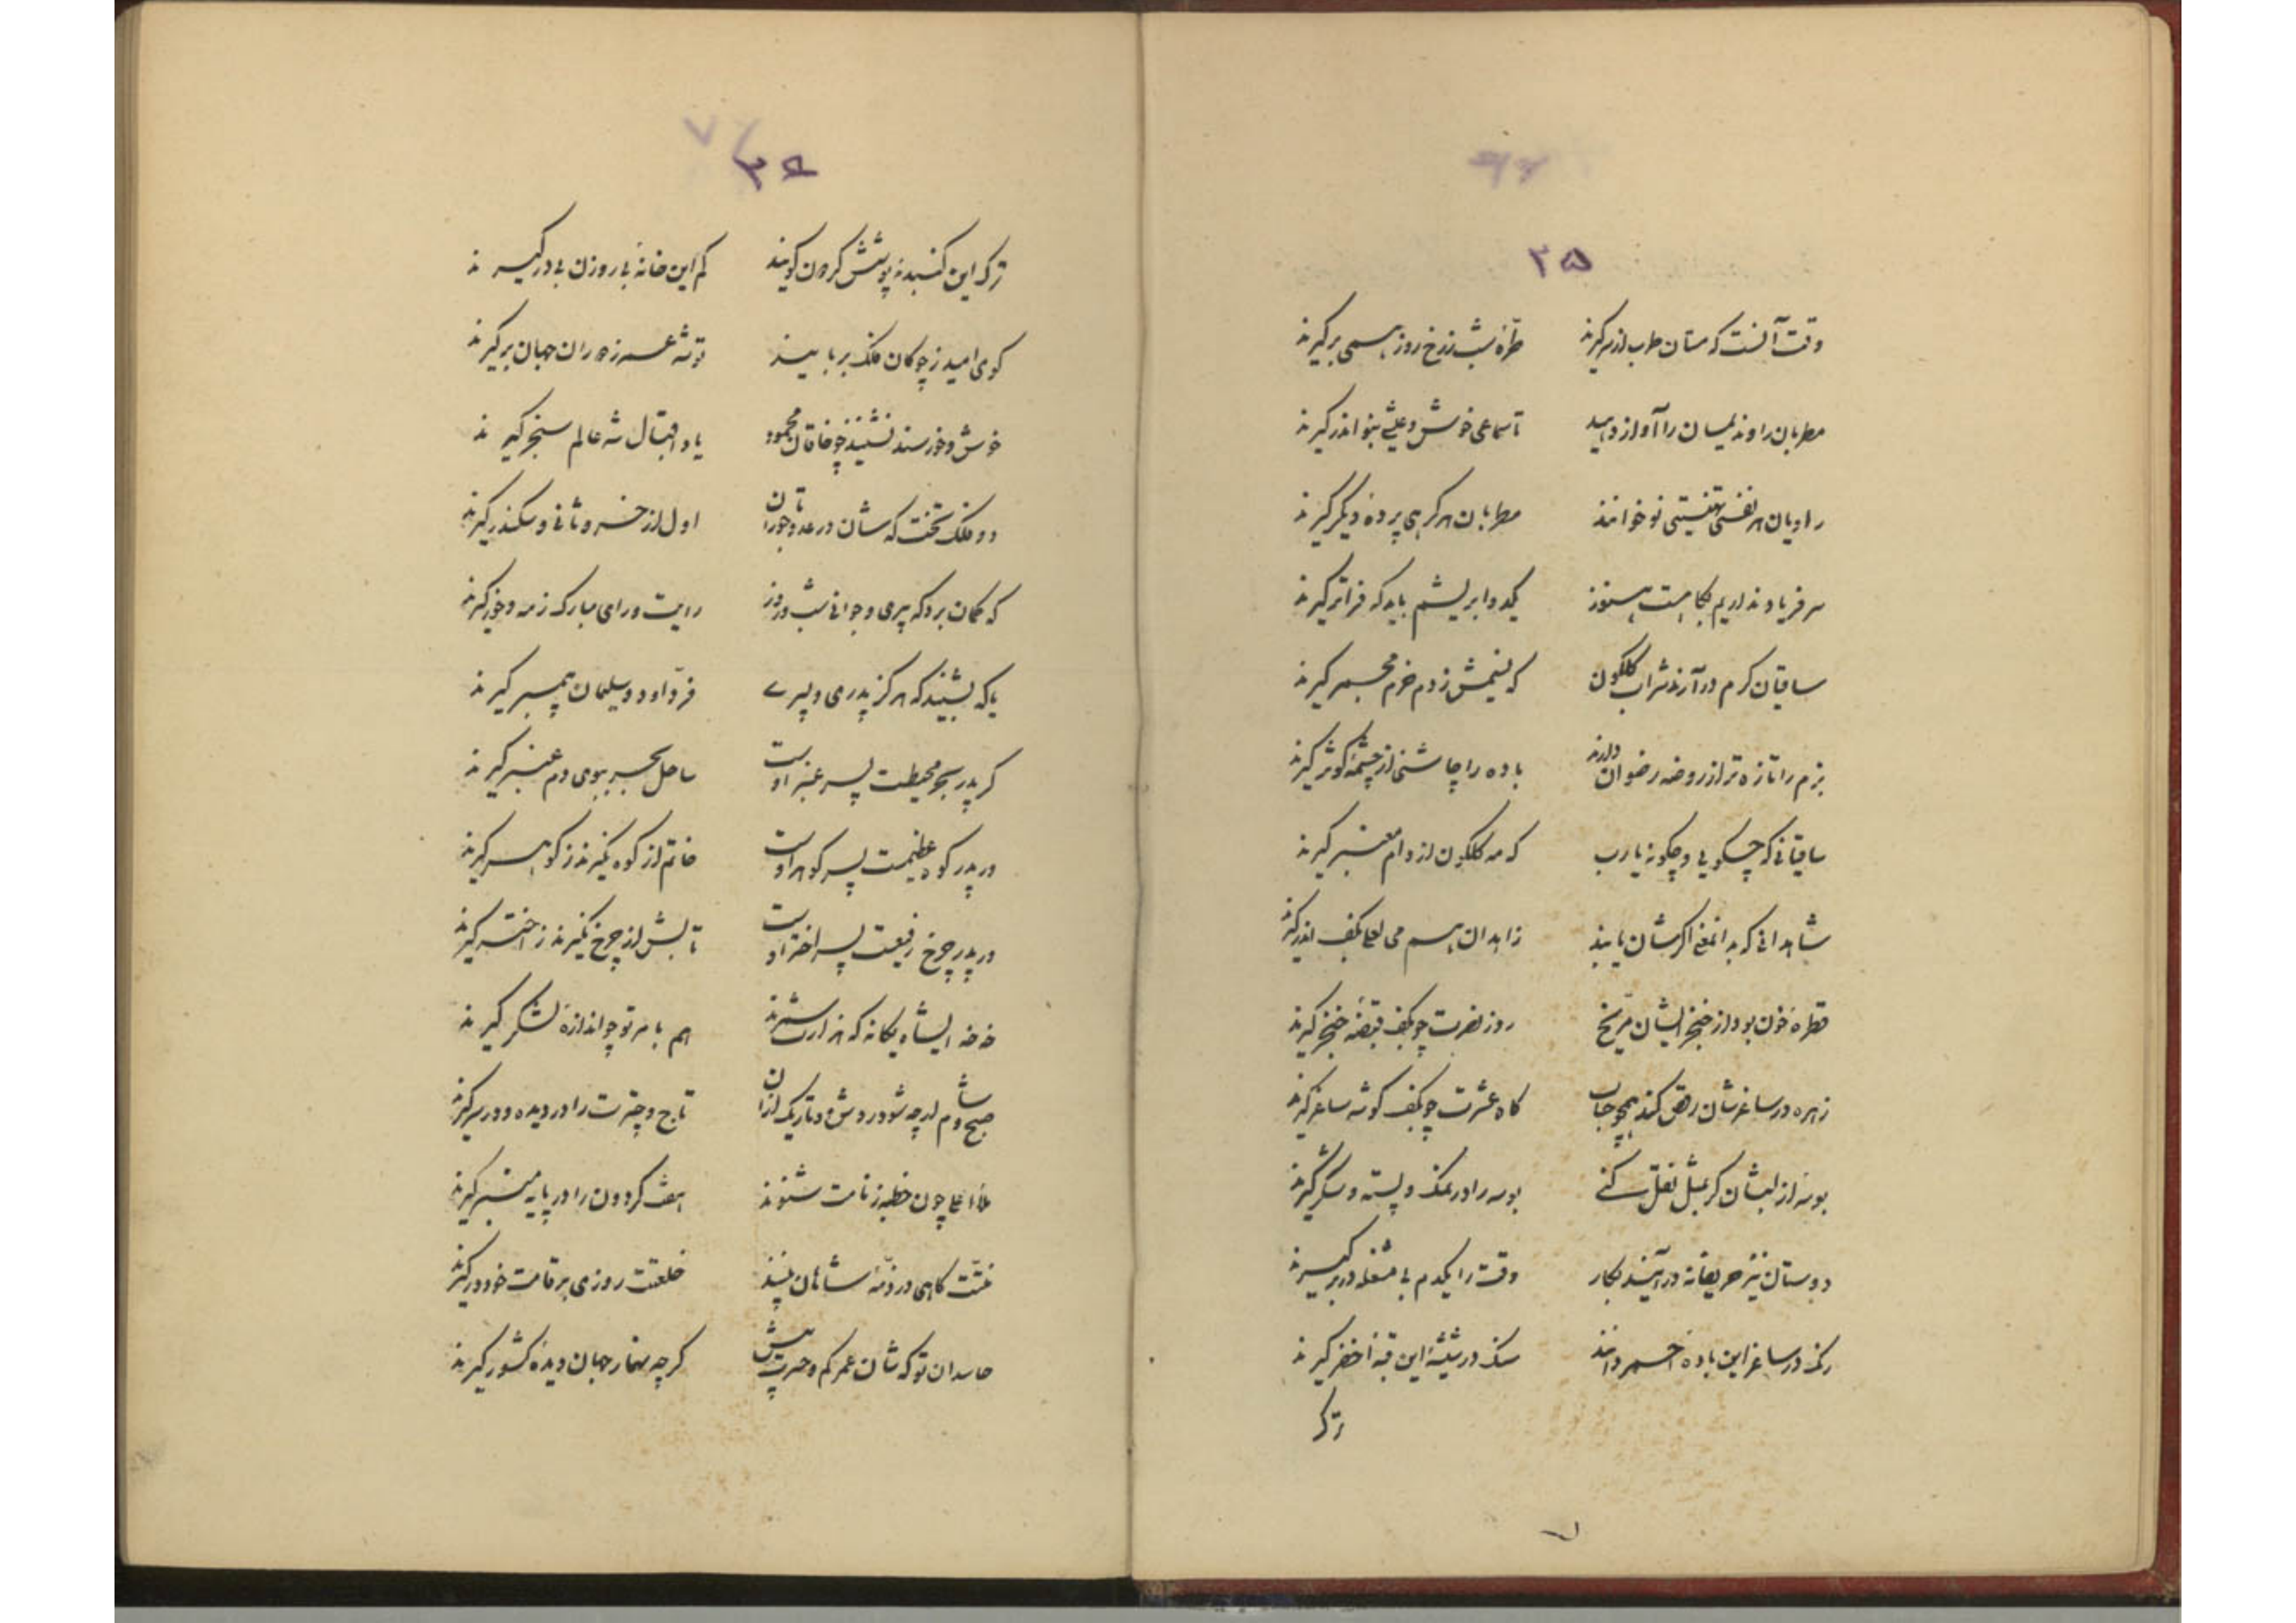 ۳۵
وقت آنست که مستان طرب از سر گیرند طرهٔ شب ز رخ روز همی برگیرند
مطربان را و ندیمان را آواز دهید تا سماعی خوش و عیشی بنوا اندر گیرند
راویان هر نفسی تهنیتی نو خوانند مطربان هر کرهی پردهٔ دیگر گیرند
سر فریاد نداریم پگاهست هنوز یکدو ابریشم باید که فراتر گیرند
ساقیان گرم در آرند شراب گلگون که نسیمش ز دم خرم مجمر گیرند
بزم را تازه تر از روضه رضوان دارند باده را چاشنی از چشمهٔ کوثر گیرند
ساقیانی که چگویی و چگونه یا رب که مه گلگون از دام معنبر گیرند
شاهدانی که بدانمغنی اگرشان یابند زاهدان هم می لعلی بکف اندر گیرند
قطرهٔ خون بود از خنجر ایشان مریخ روز نصرت چو بکف قبضهٔ خنجر گیرند
زهره در ساغرشان رقص کند همچو حباب گاه عشرت چو بکف گوشه ساغر گیرند
بوسهٔ از لبشان گر بمثل نقل کنی بوسه را در نمک و پسته و شکر گیرند
دوستان نیز حریفانه در آیند بکار وقت را یکدم بی مشغله در بر گیرند
رنگ در ساغر این بادهٔ احمر دانند سنگ در شیشهٔ این قبهٔ اخضر گیرند
ترک
۳۶
ترک این گنبد نه پوشش گردون گویند کم این خانهٔ بی روزن بی در گیرند
گوی امید ز چوگان فلک بربایند توشه عمر ز دوران جهان برگیرند
خوش و خورسند نشینند چو خاقان محمود یاد اقبال شه عالم سنجر گیرند
دو ملک تخت که شان در عدد جوراتان اول از خسرو ثانی و سکندر گیرند
که گمان برد که پیری و جوانی شب و روز رایت و رای مبارک ز مه و خور گیرند
یا که بشنید که هرگز پدری و پسری فر داود و سلیمان پیمبر گیرند
گر پدر بحر محیطست پسر عنبر اوست ساحل بحر ببوی دم عنبر گیرند
ور پدر کوه عظیمست پسر گوهر اوست خاتم از کوه نگیرند ز گوهر گیرند
ور پدر چرخ رفیعست پسر اختر اوست تابش از چرخ نگیرند ز اختر گیرند
خه خه ای شاه یگانه که هزارت شمرند هم با سر تو چو اندازهٔ لشکر گیرند
صبح و شام ار چه شود روشن و تاریک از آن تاج و چترت را در دیده و در سر گیرند
ملأ اعلی چون خطبه ز نامت شنوند هفت گردون را در پایه منبر گیرند
منتت گاهی در ذمهٔ شاهان بینند خلعتت روزی بر قامت خود در گیرند
حاسدان تو که شان عمر کم و حسرت بیش گرچه بیمار جهان دیدهٔ کشور گیرند